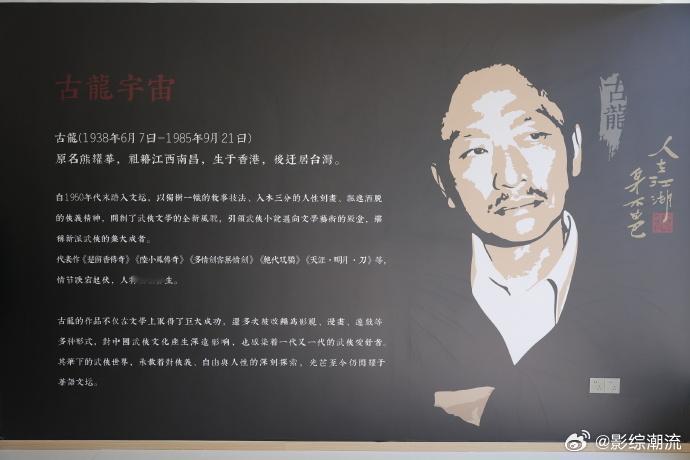 古龍宇宙
古龍(1938年6月7日-1985年9月21日)
原名熊耀華，祖籍江西南昌，生于香港，後迁居台灣。
自1950年代末踏入文坛，以獨樹一幟的敘事技法、入木三分的人性刻畫、飄逸洒脱
的俠義精神，開創了武俠文學的全新風貌，引領武俠小說邁向文學藝術的殿堂，堪
稱新派武俠的集大成者。
代表作《楚留香傳奇》《陸小鳳傳奇》《多情劍客無情劍》《絕代双驕》《天涯·明月·刀》等，
情节跌宕起伏，人物 生。
古龍的作品不仅在文學上取得了巨大成功，還多次被改編為影視、漫畫、遊戲等
多种形式，對中國武俠文化產生深遠影響，也感染着一代又一代的武俠愛好者。
其筆下的武俠世界，承載着對俠義、自由與人性的深刻探索，光芒至今仍閃耀于
華語文坛。
古龍
人在江湖
身不由己
@影综潮流